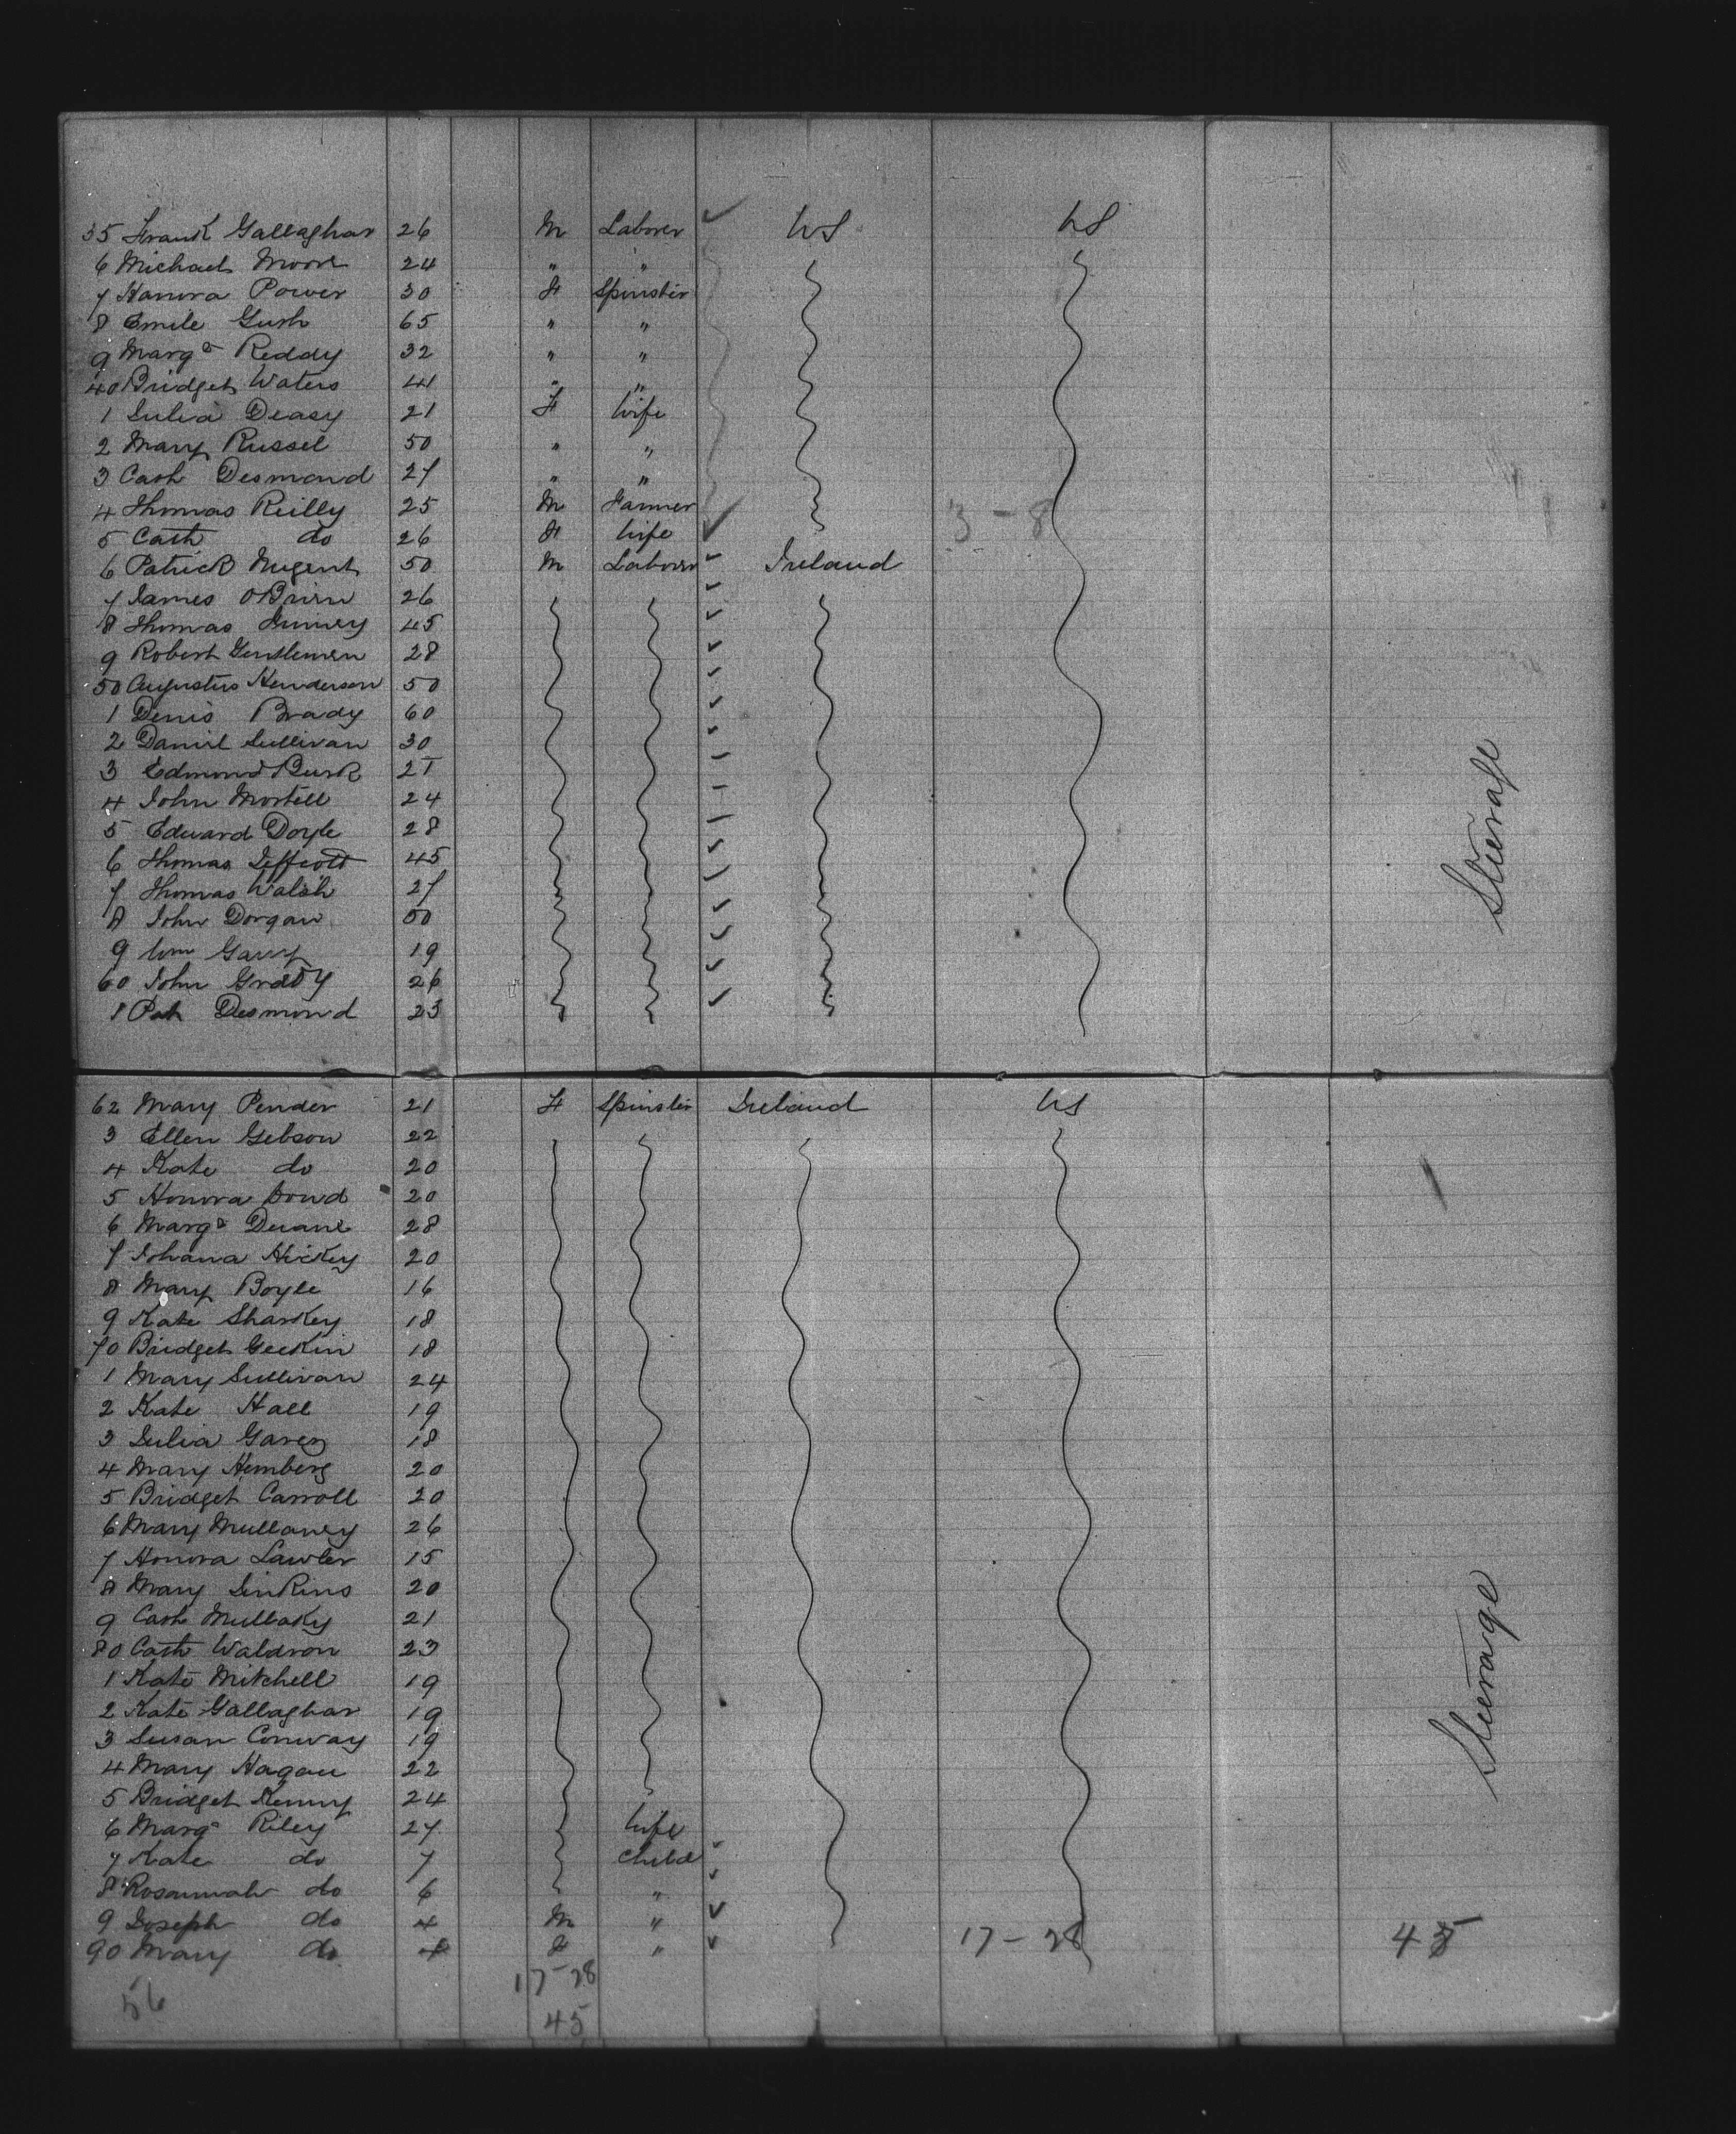 35 Frank Gallaghar 26 M Laborer US US
6 Michael Moore 24 " "
7 Hanora Power 30 F Spinster
8 Emile Gush 65 " "
9 Margt Reddy 32 " "
40 Bridget Waters 41 " "
1 Julia Deasy 21 F Wife
2 Mary Russel 50 " "
3 Cath Desmond 27 " "
4 Thomas Reilly 25 M Farmer 3-8
5 Cath do 26 F Wife
6 Patrick Nugent 50 M Laborer Ireland
7 James OBrien 26
8 Thomas 45
9 Robert Gentlemen 28
50 Augustus Henderson 50
1 Denis Brady 60
2 Daniel Sullivan 30
3 Edmond Burk 21
4 John Mortell 24
5 Edward Doyle 28
6 Thomas Jeffcott 45
7 Thomas Walsh 27
8 John Dorgan 50
9 Wm Garry 19
60 John Grady 26
1 Pat Desmond 23
Steerage
62 Mary Pender 21 F Spinster Ireland US
3 Ellen Gibson 22
4 Kate do 20
5 Honora Dowd 20
6 Margt Duane 28
7 Johana Hickey 20
8 Mary Boyle 16
9 Kate Sharkey 18
70 Bridget Geekin 18
1 Mary Sullivan 24
2 Kate Hall 19
3 Julia Garey 18
4 Mary Hemberg 20
5 Bridget Carroll 20
6 Mary Mullaney 26
7 Honora Lawler 15
8 Mary Jinkins 20
9 Cath Mullaky 21
80 Cath Waldron 23
1 Kate Mitchell 19
2 Kate Gallaghar 19
3 Susan Conway 19
4 Mary Hagan 22
5 Bridget Kenny 24
6 Margt Riley 27 Wife
7 Kate do 7 Child
8 Rosannah do 6 "
9 Joseph do 4 M "
90 Mary do F " 17-28 45
Steerage
56 17-28
45